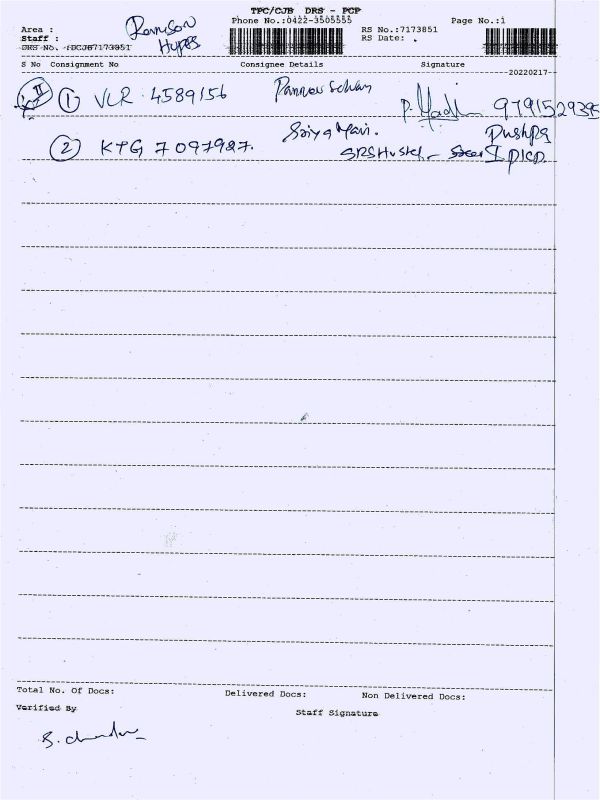 TPC/CJB DRS - PCP
Phone No.:0422-3505555 Page No.:1
Area :
Staff :
DRS No. :DCJB7173851
RS No.:7173851
RS Date: .
S No Consignment No Consignee Details Signature
20220217
II
1 VLR 4589156 9791529395
Pushpa
2 KTG 7097927.
SRS Hostel -
Total No. Of Docs: Delivered Docs: Non Delivered Docs:
Verified By Staff Signature